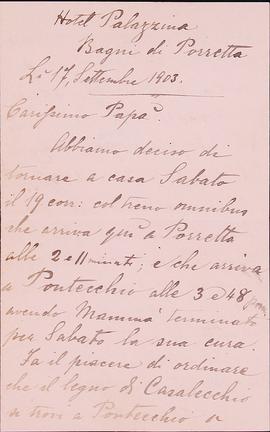 Hotel Palazzina
Bagni di Porretta
Lì 17, Settembre 1903.
Carissimo Papà.
Abbiamo deciso di
tornare a casa Sabato
il 19 corr: col treno omnibus
che arriva qui a Porretta
alle 2 e 11 minuti; e che arriva
a Pontecchio alle 3 e 48
avendo Mammà terminato
per Sabato la sua cura.
Fa il piacere di ordinare
che il legno di Casalecchio
si trovi a Pontecchio